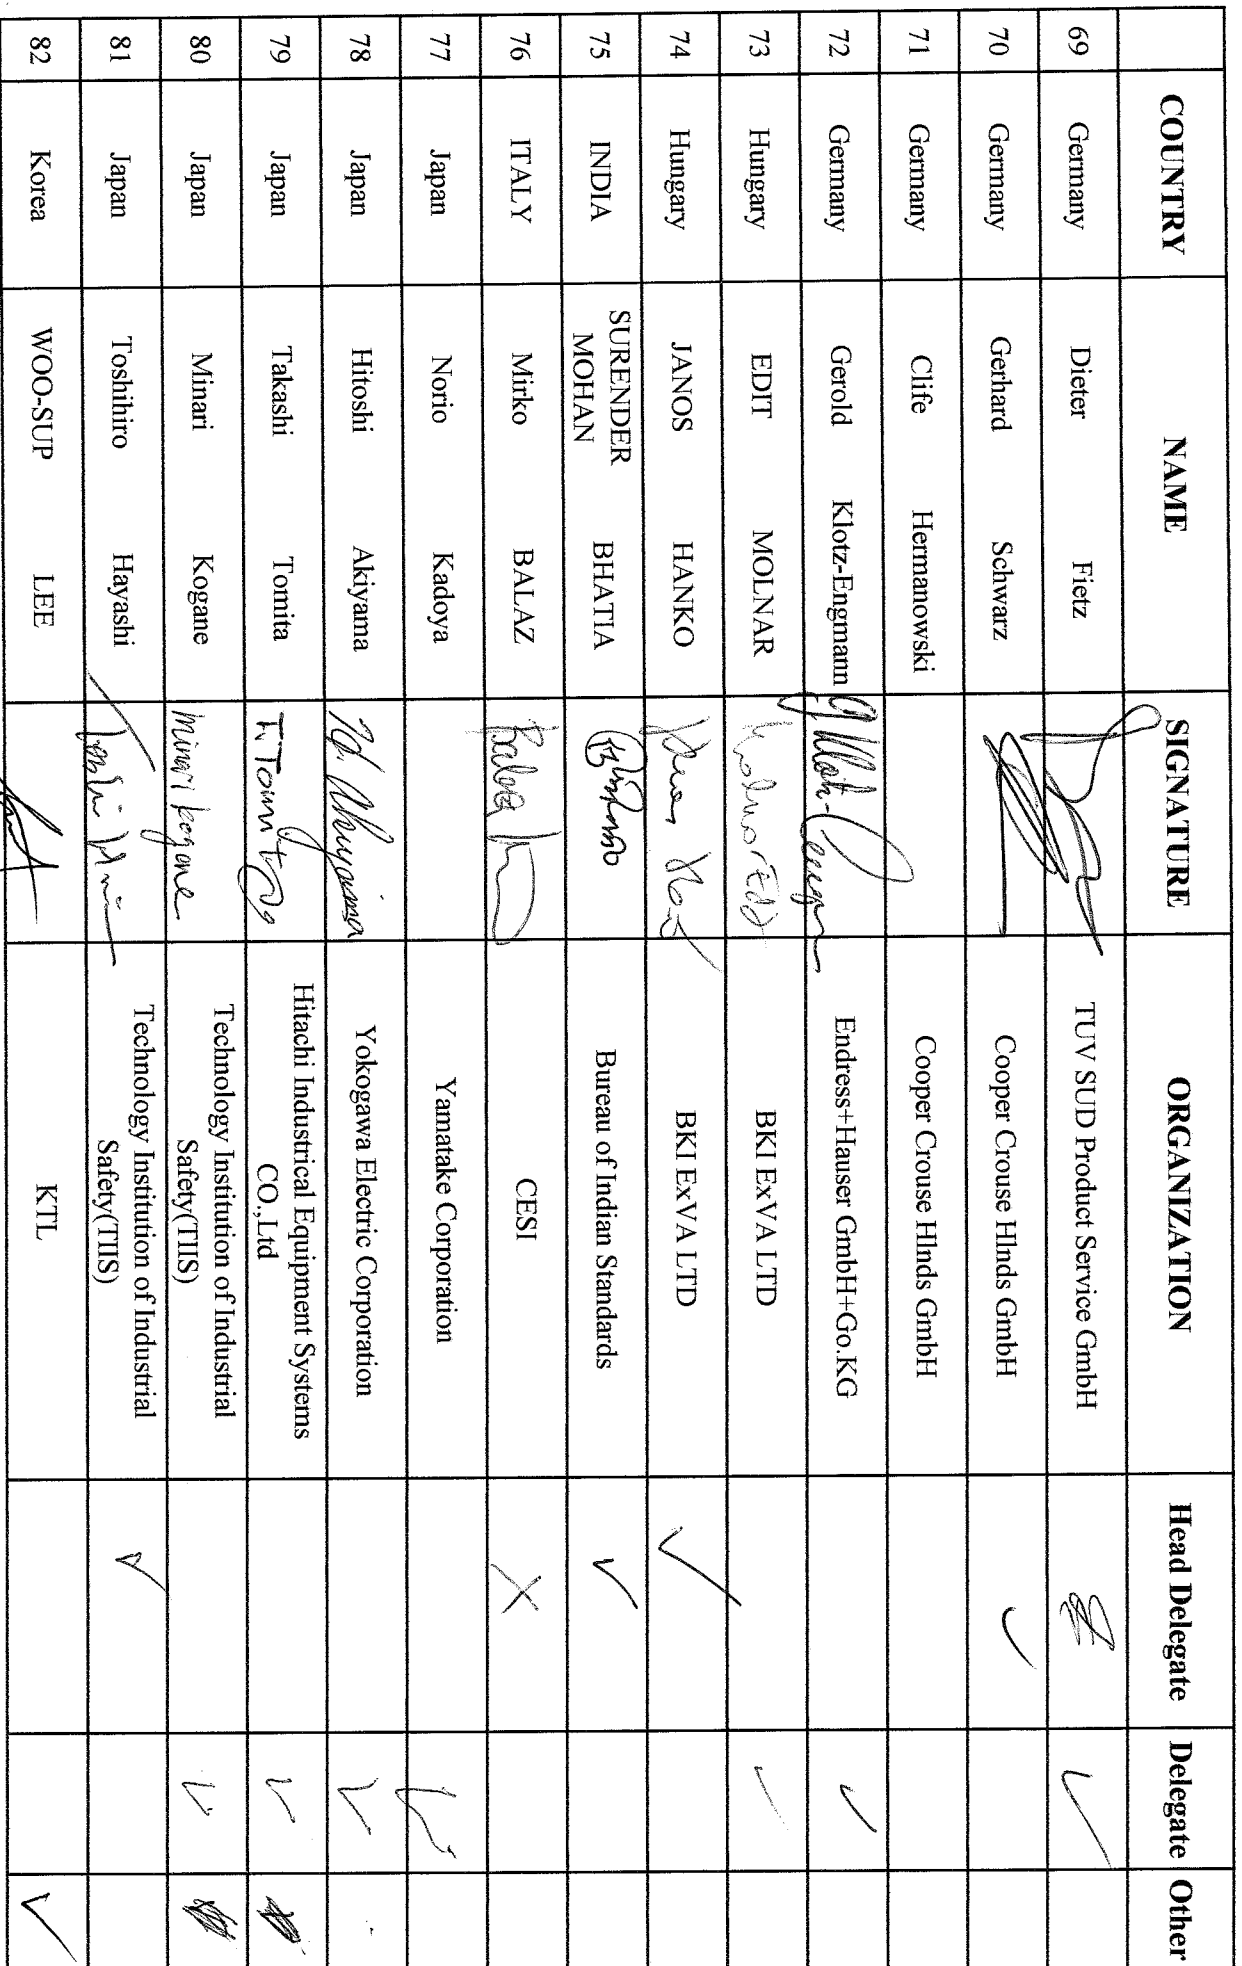 COUNTRY NAME SIGNATURE ORGANIZATION Head Delegate Delegate Other
69 Germany Dieter Fietz TUV SUD Product Service GmbH
70 Germany Gerhard Schwarz Cooper Crouse HInds GmbH ✓
71 Germany Clife Hermanowski Cooper Crouse HInds GmbH
72 Germany Gerold Klotz-Engmann Endress+Hauser GmbH+Go.KG ✓
73 Hungary EDIT MOLNAR Molnar Edit BKI ExVA LTD ✓
74 Hungary JANOS HANKO BKI ExVA LTD ✓
75 INDIA SURENDER
MOHAN BHATIA Bureau of Indian Standards ✓
76 ITALY Mirko BALAZ CESI X
77 Japan Norio Kadoya Yamatake Corporation ✓
78 Japan Hitoshi Akiyama H. Akiyama Yokogawa Electric Corporation ✓
79 Japan Takashi Tomita T. Tomita Hitachi Industrical Equipment Systems
CO.,Ltd ✓
80 Japan Minari Kogane Minari kogane Technology Institution of Industrial
Safety(TIIS) ✓
81 Japan Toshihiro Hayashi Technology Institution of Industrial
Safety(TIIS) ✓
82 Korea WOO-SUP LEE KTL ✓